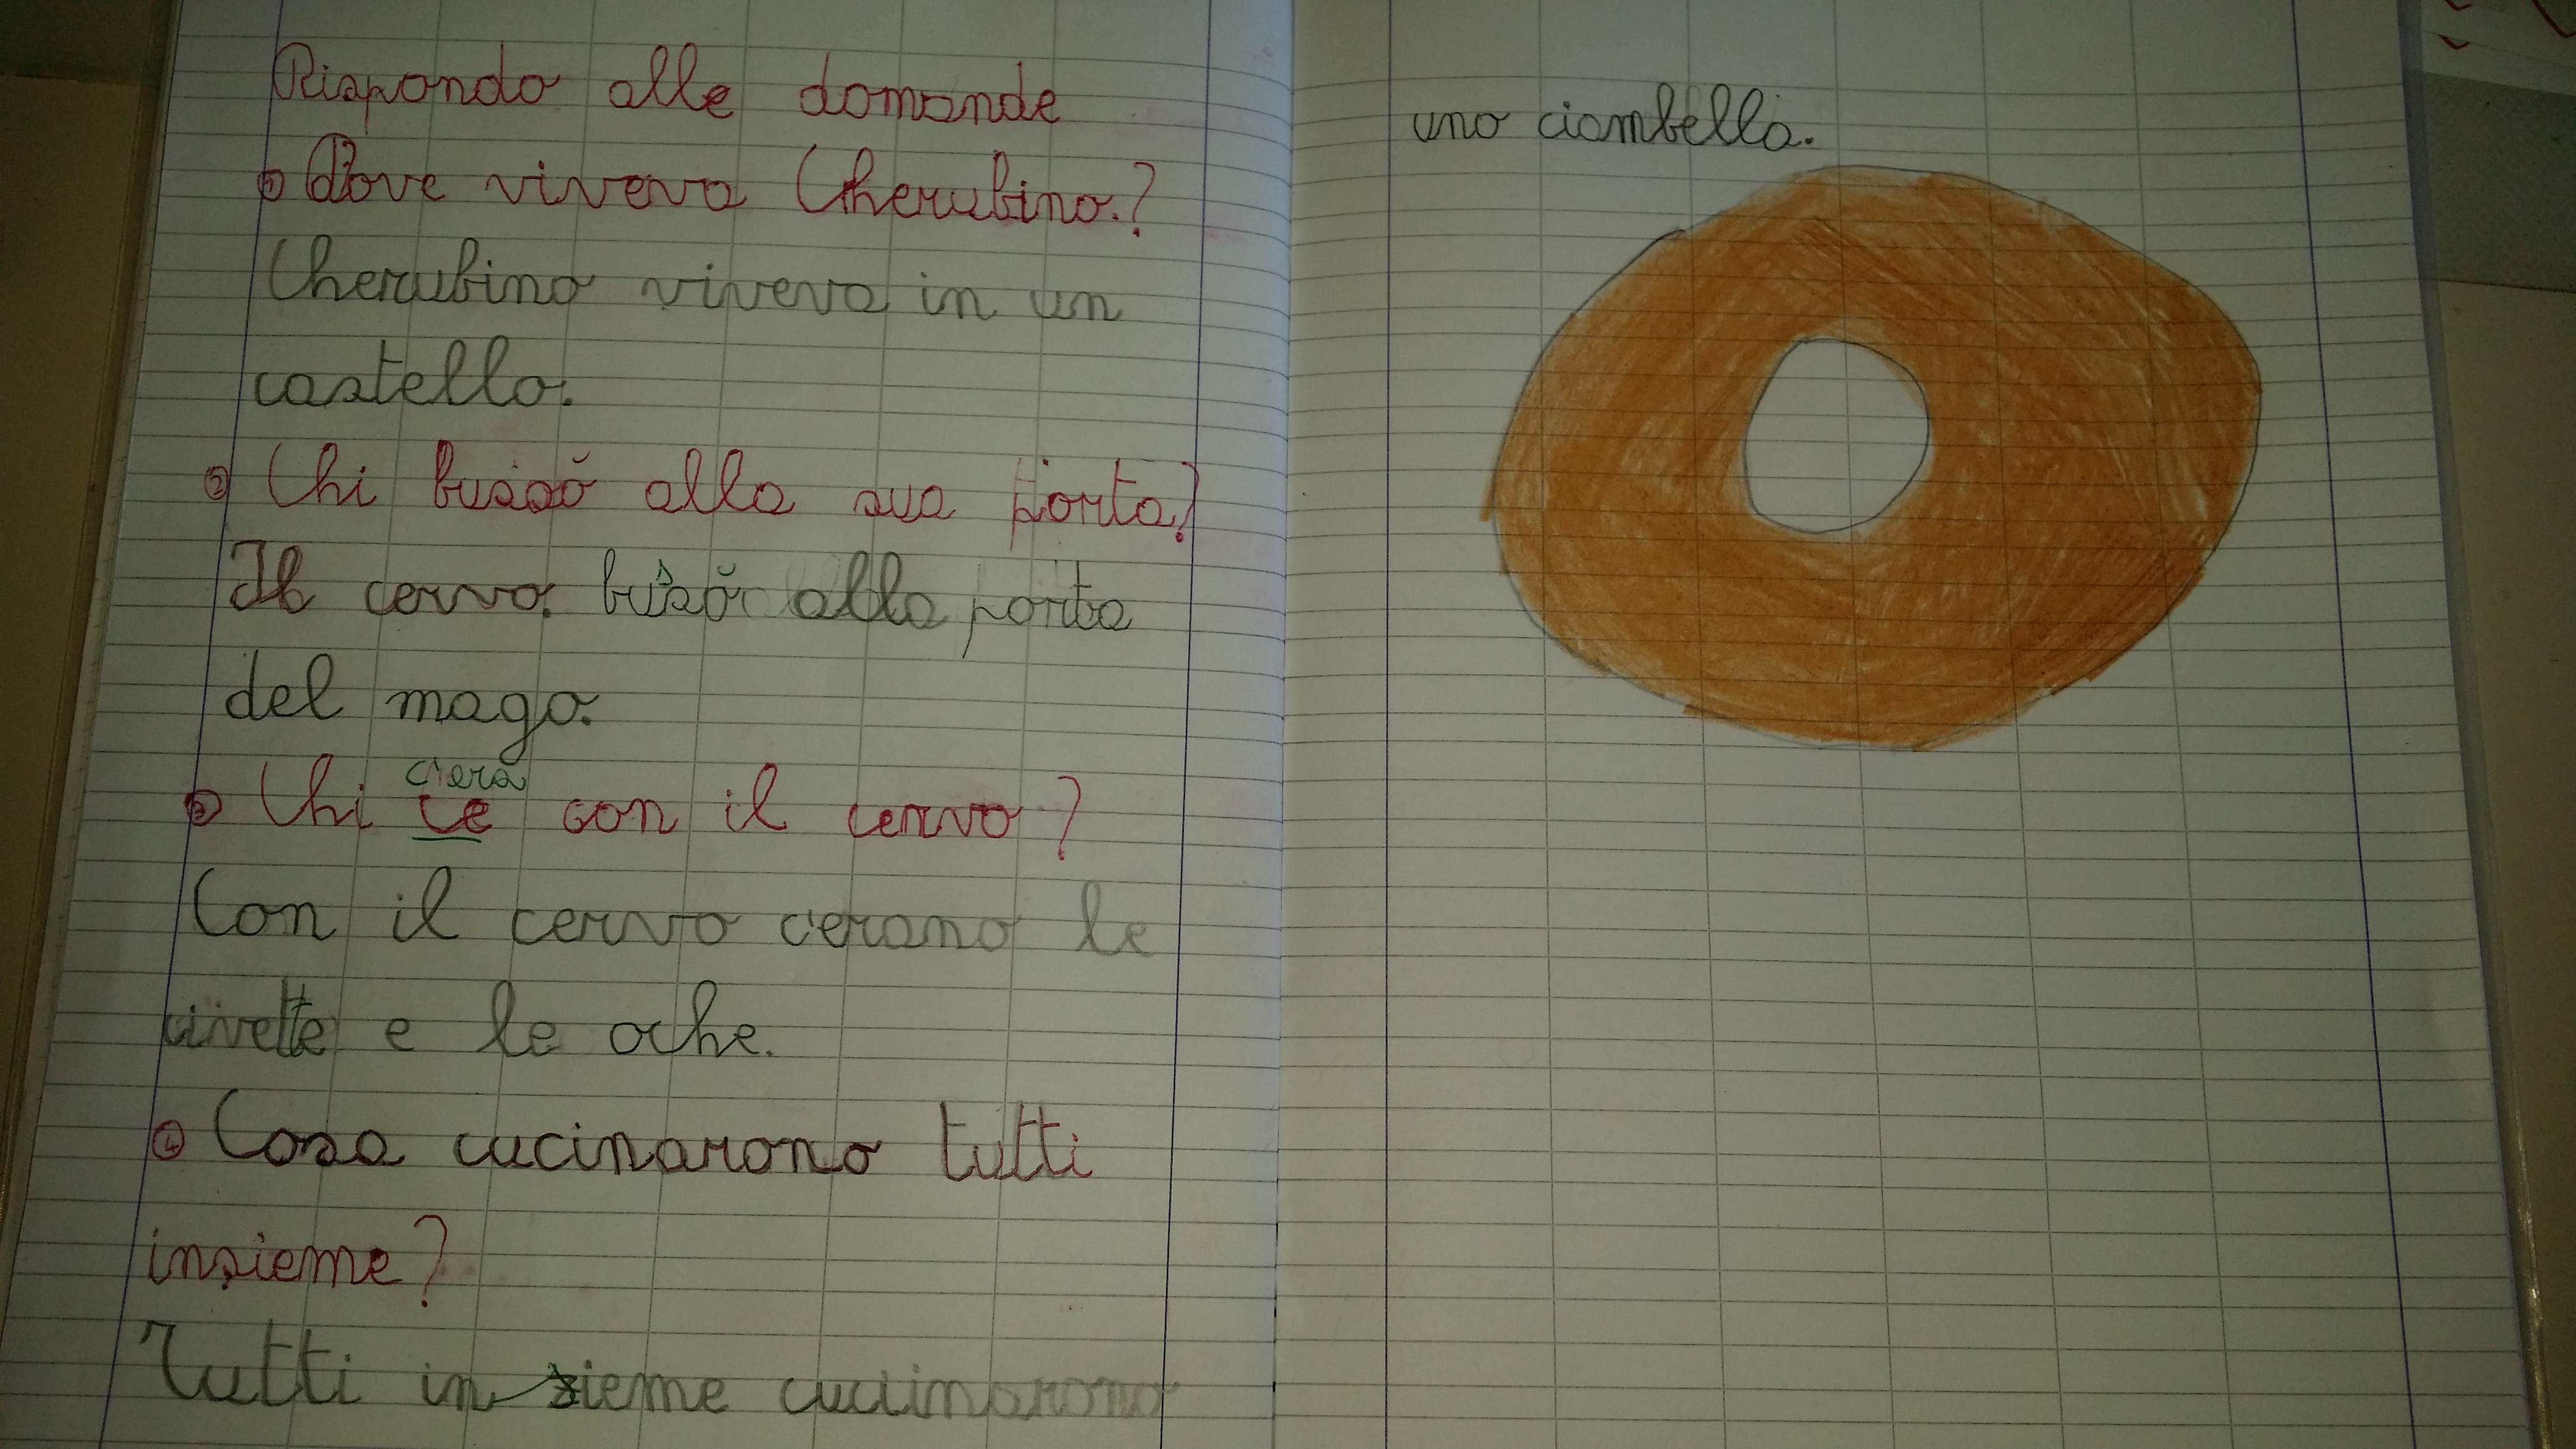 Rispondo alle domande
① Dove viveva Cherubino?
Cherubino viveva in un
castello.
② Chi bussò alla sua porta?
Il cervo bussò alla porta
del mago.
c'era
③ Chi ce con il cervo?
Con il cervo c'erano le
civette e le oche.
④ Cosa cucinarono tutti
insieme?
Tutti insieme cucinarono
una ciambella.